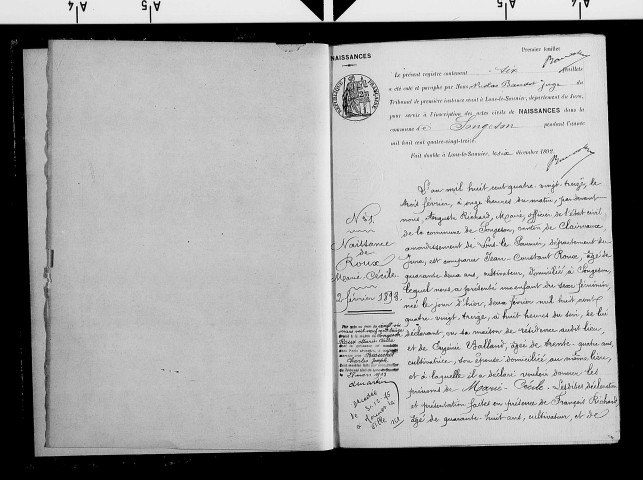 A 4
A 5
NAISSANCES
Premier feuillet
Le présent registre contenant six feuillets
a été coté et paraphé par Nous Nicolas Baudot Juge du
Tribunal de première instance séant à Lons-le-Saunier, département du Jura,
pour servir à l'inscription des actes civils de NAISSANCES dans la
commune de Songeson pendant l'année
mil huit cent quatre-vingt-treize
Fait double à Lons-le-Saunier, le décembre 1892
RÉPUBLIQUE FRANÇAISE
N° 1.
Naissance
de
Roux
Marie Cécile.
2 février 1893.
L'an mil huit cent quatre-vingt treize, le
trois février, à onze heures du matin, par devant
nous, Auguste Richard, Maire, officier de l'état civil
de la commune de Songeson, canton de Clairvaux,
arrondissement de Lons-le-Saunier, département du
Jura, est comparu Jean-Constant Roux, âgé de
quarante deux ans, cultivateur, domicilié à Songeson,
lequel nous a présenté un enfant du sexe féminin,
née le jour d'hier, deux février mil huit cent
quatre vingt-treize, à huit heures du soir, de lui
déclarant, en sa maison de résidence audit lieu,
et de Eugénie Balland, âgée de trente-quatre ans,
cultivatrice, son épouse domiciliée au même lieu,
et à laquelle il a déclaré vouloir donner les
prénoms de Marie-Cécile. Lesdites déclaration
et présentation faites en présence de François Richard,
âgé de quarante-huit ans, cultivateur, et de
Roux Marie Cécile
Charles Joseph
décédée
le 31.12.65
à